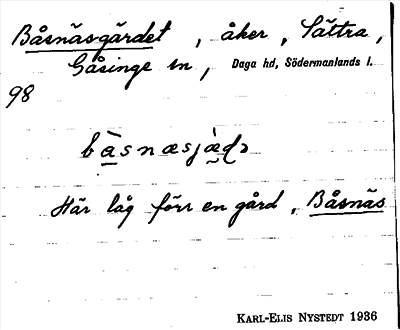 Båsnäsgärdet, åker, Sättra,
Gåsinge sn, Daga hd, Södermanlands l.
98
Här låg förr en gård, Båsnäs
KARL-ELIS NYSTEDT 1936